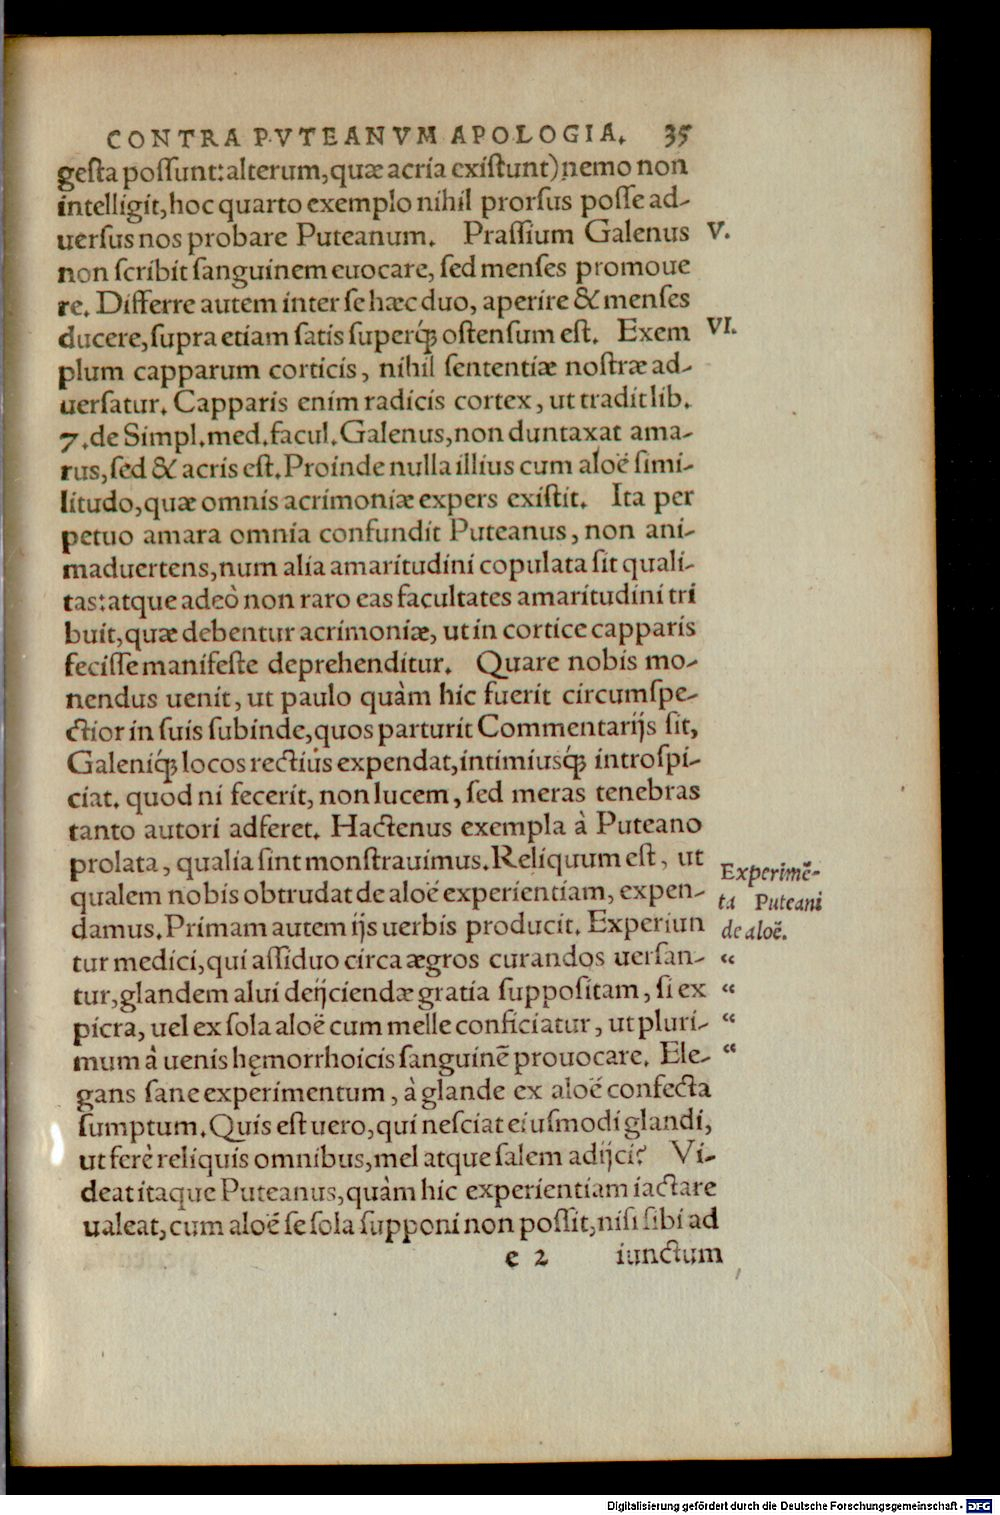 CONTRA PVTEANVM APOLOGIA. 35
gesta possunt: alterum, quæ acria existunt) nemo non
intelligit, hoc quarto exemplo nihil prorsus posse ad-
uersus nos probare Puteanum. Prassium Galenus V.
non scribit sanguinem euocare, sed menses promoue
re. Differre autem inter se hæc duo, aperire & menses
ducere, supra etiam satis superq́; ostensum est. Exem VI.
plum capparum corticis, nihil sententiæ nostræ ad-
uersatur. Capparis enim radicis cortex, ut tradit lib.
7. de Simpl. med. facul. Galenus, non duntaxat ama-
rus, sed & acris est. Proinde nulla illius cum aloë simi-
litudo, quæ omnis acrimoniæ expers existit. Ita per
petuo amara omnia confundit Puteanus, non ani-
maduertens, num alia amaritudini copulata sit quali-
tas: atque adeò non raro eas facultates amaritudini tri
buit, quæ debentur acrimoniæ, ut in cortice capparis
fecisse manifeste deprehenditur. Quare nobis mo-
nendus uenit, ut paulo quàm hic fuerit circumspe-
ctior in suis subinde, quos parturit Commentarijs sit,
Galeniq́; locos rectiùs expendat, intimiusq́; introspi-
ciat. quod ni fecerit, non lucem, sed meras tenebras
tanto autori adferet. Hactenus exempla à Puteano
prolata, qualia sint monstrauimus. Reliquum est, ut
qualem nobis obtrudat de aloë experientiam, expen-
damus. Primam autem ijs uerbis producit. Experiun
Experimẽ-
ta Puteani
de aloë.
tur medici, qui assiduo circa ægros curandos uersan- “
tur, glandem alui deijciendæ gratia suppositam, si ex “
picra, uel ex sola aloë cum melle conficiatur, ut pluri- “
mum à uenis hęmorrhoicis sanguinẽ prouocare. Ele- “
gans sane experimentum, à glande ex aloë confecta
sumptum. Quis est uero, qui nesciat eiusmodi glandi,
ut ferè reliquis omnibus, mel atque salem adijci? Vi-
deat itaque Puteanus, quàm hic experientiam iactare
ualeat, cum aloë se sola supponi non possit, nisi sibi ad
e 2 iunctum
Digitalisierung gefördert durch die Deutsche Forschungsgemeinschaft - DFG